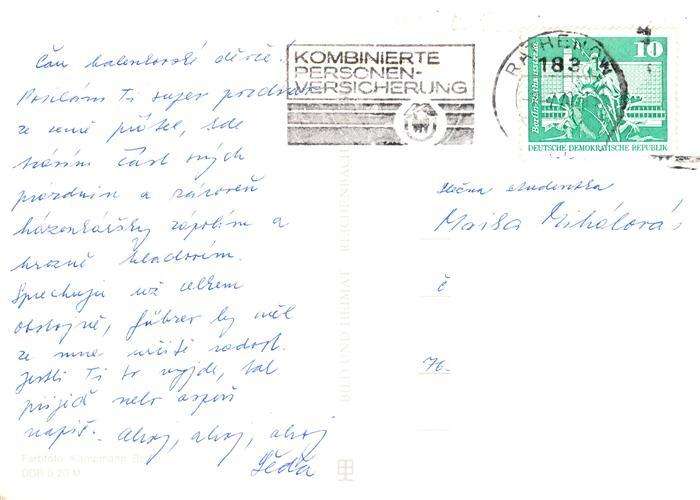 Čau kalenborské děvče!
Posílám Ti super pozdrav
ze země přátel, kde
trávím část svých
prázdnin a zároveň
házenkářsky zápolím a
hrozně hladovím.
Sprechuju už celkem
obstojně, führer by měl
ze mne určitě radost.
Jestli Ti to vyjde, tak
přijeď nebo aspoň
napiš. Ahoj, ahoj, ahoj
Léda
KOMBINIERTE
PERSONEN-
VERSICHERUNG
RATHENOW
183
10
Berlin-Rathausstraße
DEUTSCHE DEMOKRATISCHE REPUBLIK
Slečna studentka
Maika Mihálová
č
76.
BILD UND HEIMAT REICHENBACH
Farbfoto: Kampmann